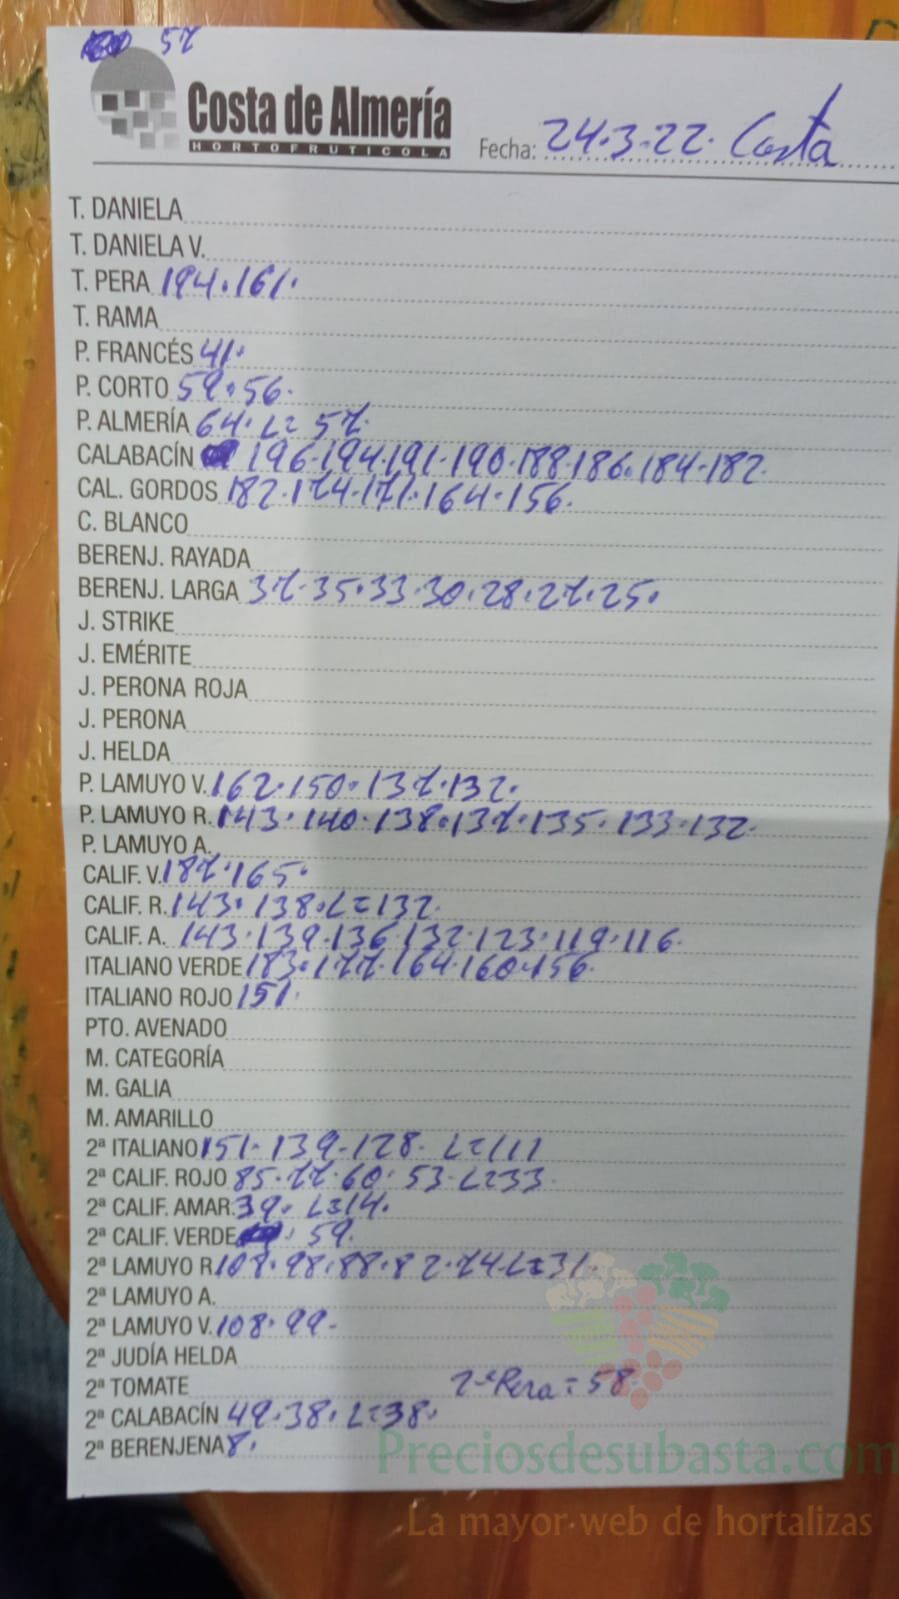 57
Costa de Almería
HORTOFRUTICOLA
Fecha: 24.3.22. Costa
T. DANIELA
T. DANIELA V.
T. PERA 194.161.
T. RAMA
P. FRANCÉS 41.
P. CORTO 59.56.
P. ALMERÍA 64. L= 57.
CALABACÍN 196.194.191.190.188.186.184.182.
CAL. GORDOS 182.174.171.164.156.
C. BLANCO
BERENJ. RAYADA
BERENJ. LARGA 37.35.33.30.28.27.25.
J. STRIKE
J. EMÉRITE
J. PERONA ROJA
J. PERONA
J. HELDA
P. LAMUYO V. 162.150.137.132.
P. LAMUYO R. 143.140.138.137.135.133.132.
P. LAMUYO A.
CALIF. V. 187.165.
CALIF. R. 143.138.L=132.
CALIF. A. 143.139.136.132.123.119.116.
ITALIANO VERDE 183.177.164.160.156.
ITALIANO ROJO 151.
PTO. AVENADO
M. CATEGORÍA
M. GALIA
M. AMARILLO
2ª ITALIANO 151.139.128. L=111
2ª CALIF. ROJO 85.77.60.53.L=33.
2ª CALIF. AMAR. 39. L=14.
2ª CALIF. VERDE 59.
2ª LAMUYO R. 108.98.88.82.74.L=31.
2ª LAMUYO A.
2ª LAMUYO V. 108.99.
2ª JUDÍA HELDA
2ª TOMATE 2ª Pera = 58.
2ª CALABACÍN 49.38.L=38.
2ª BERENJENA 8.
Preciosdesubasta.com
La mayor web de hortalizas